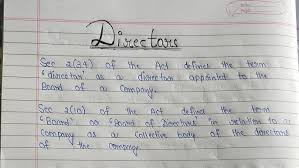 Directors
Sec 2(34) of the Act defines the term
'director' as a director appointed to the
Board of a company.
Sec 2(10) of the act defines the term
'Board' or 'Board of Directors' in relation to a
Company as a collective body of the directors
of the company.